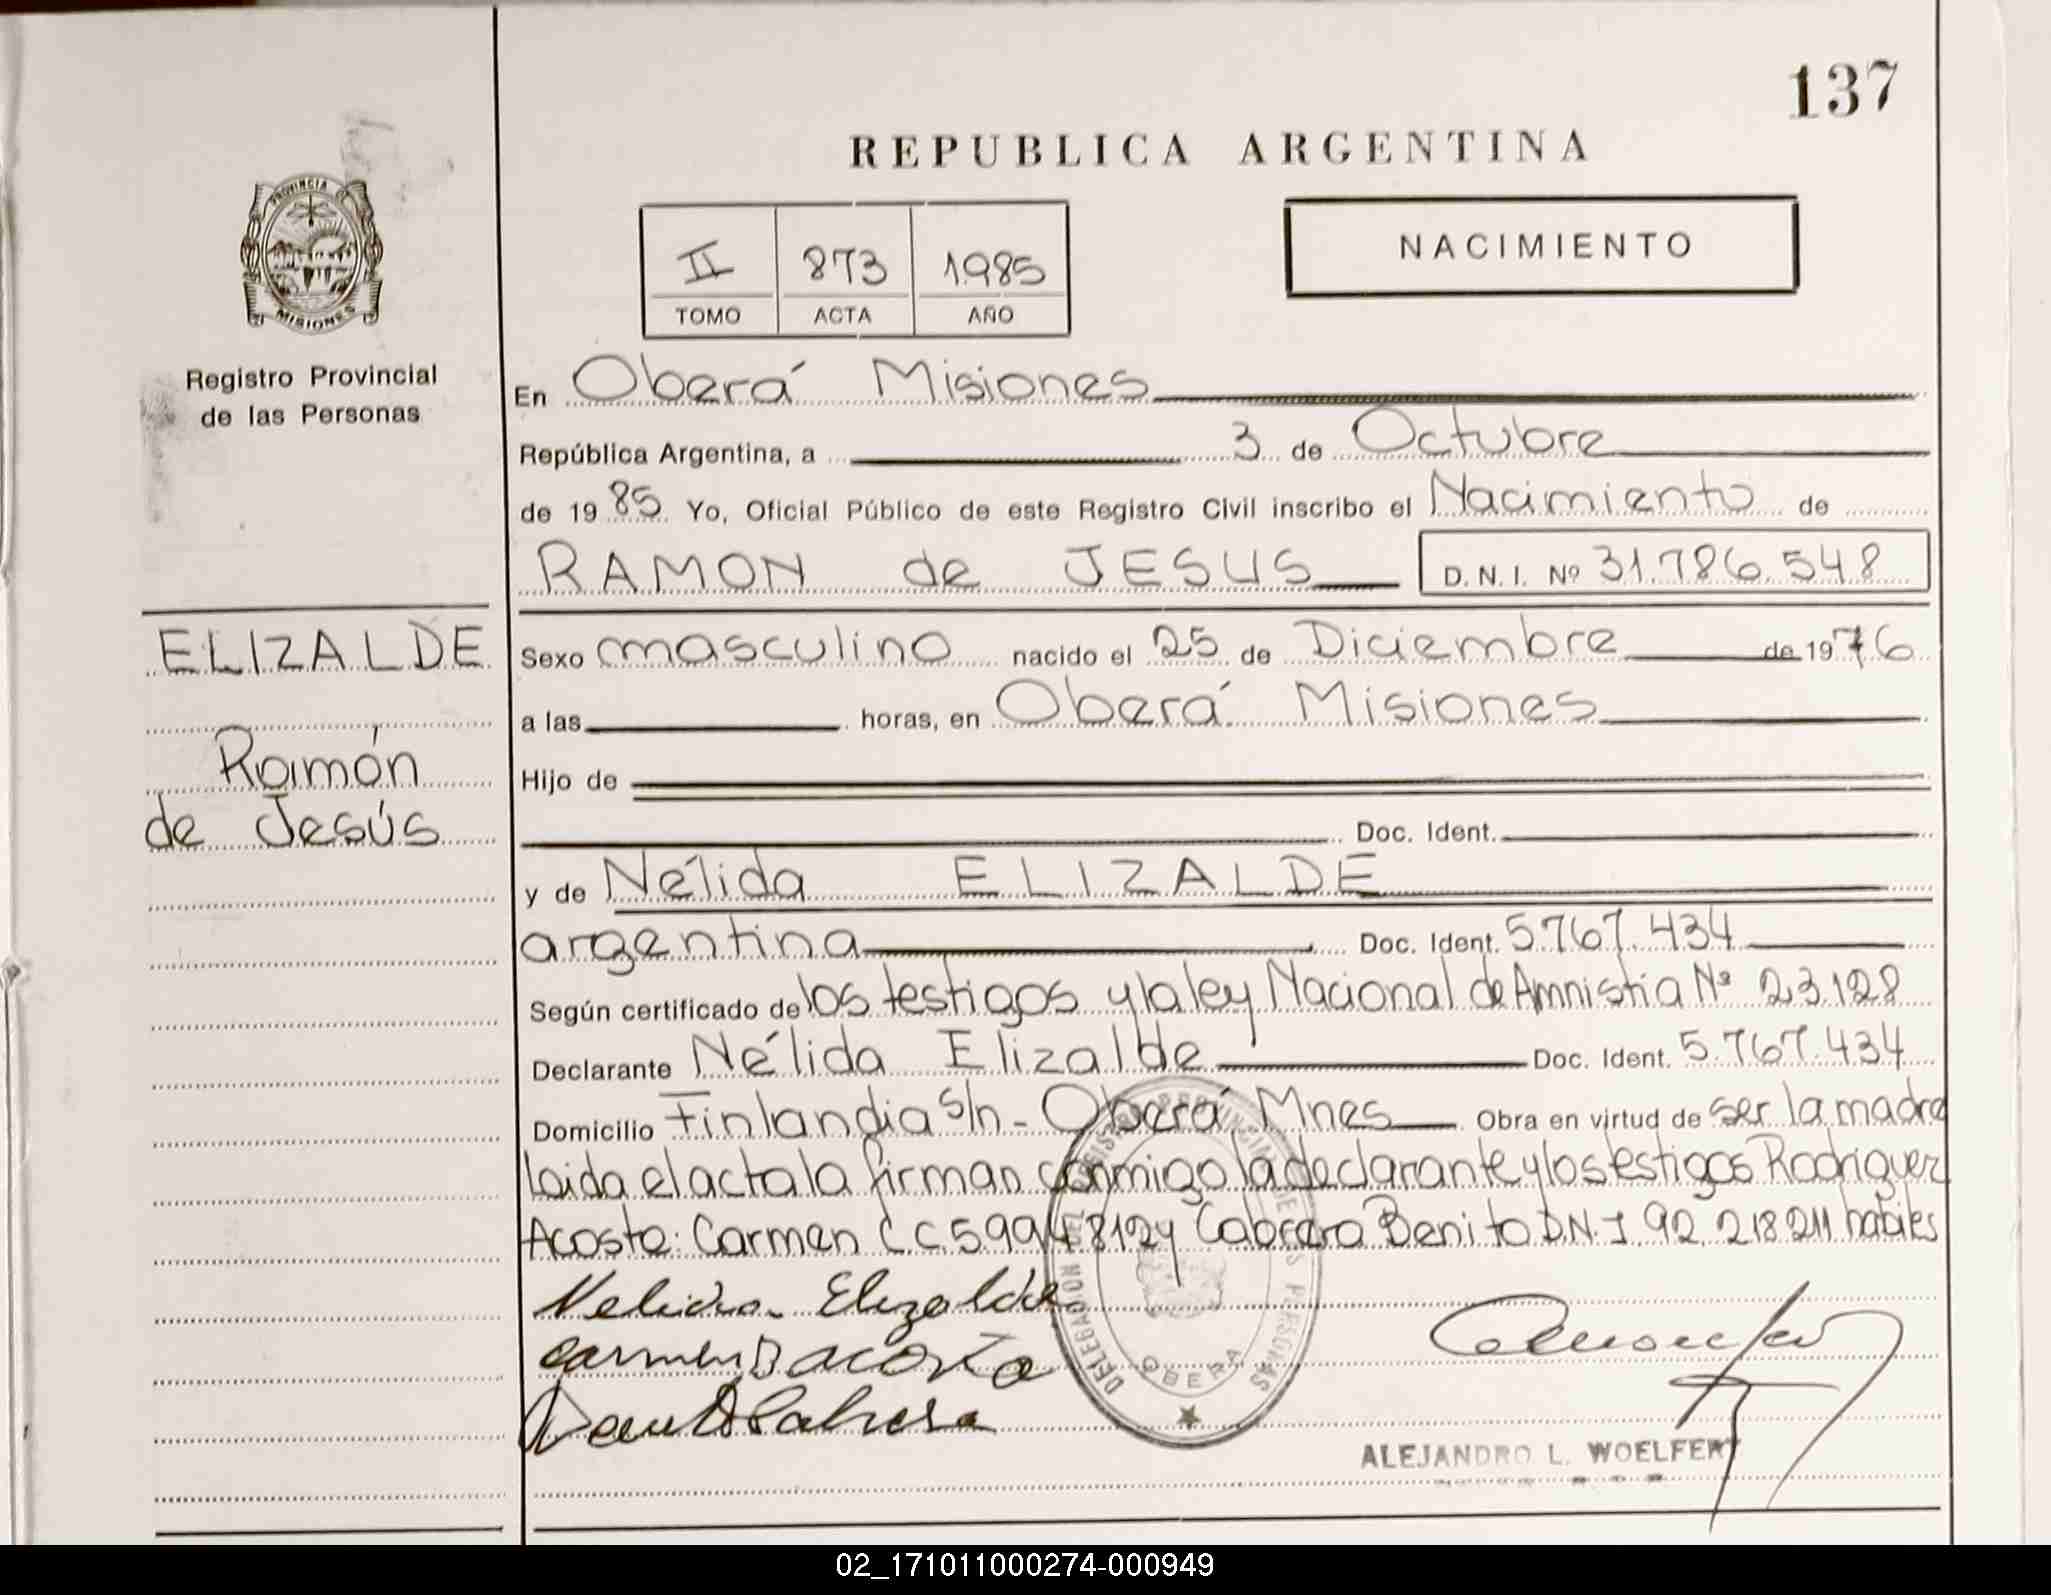 137
REPUBLICA ARGENTINA
PROVINCIA
MISIONES
Registro Provincial
de las Personas
II 873 1985
TOMO ACTA AÑO
NACIMIENTO
En Oberá Misiones
República Argentina, a 3 de Octubre
de 1985 Yo, Oficial Público de este Registro Civil inscribo el Nacimiento de
RAMON de JESUS D.N.I. Nº 31.786.548
ELIZALDE
Ramón
de Jesús
Sexo masculino nacido el 25 de Diciembre de 1976
a las horas, en Oberá Misiones
Hijo de
Doc. Ident.
y de Nélida ELIZALDE
argentina Doc. Ident. 5.767.434
Según certificado de los testigos y la ley Nacional de Amnistia Nº 23.128
Declarante Nélida Elizalde Doc. Ident. 5.767.434
Domicilio Finlandia s/n - Oberá Mnes Obra en virtud de ser la madre
Leida el acta la firman conmigo la declarante y los testigos Rodriguez
Acosta Carmen C.C. Cabrera Benito D.N.I. 92.218.211 habiles
Nelida Elizalde
Carmen Acosta
Cabrera
DELEGACION DEL REGISTRO PROVINCIAL DE LAS PERSONAS
OBERA
ALEJANDRO L. WOELFERT
02_171011000274-000949